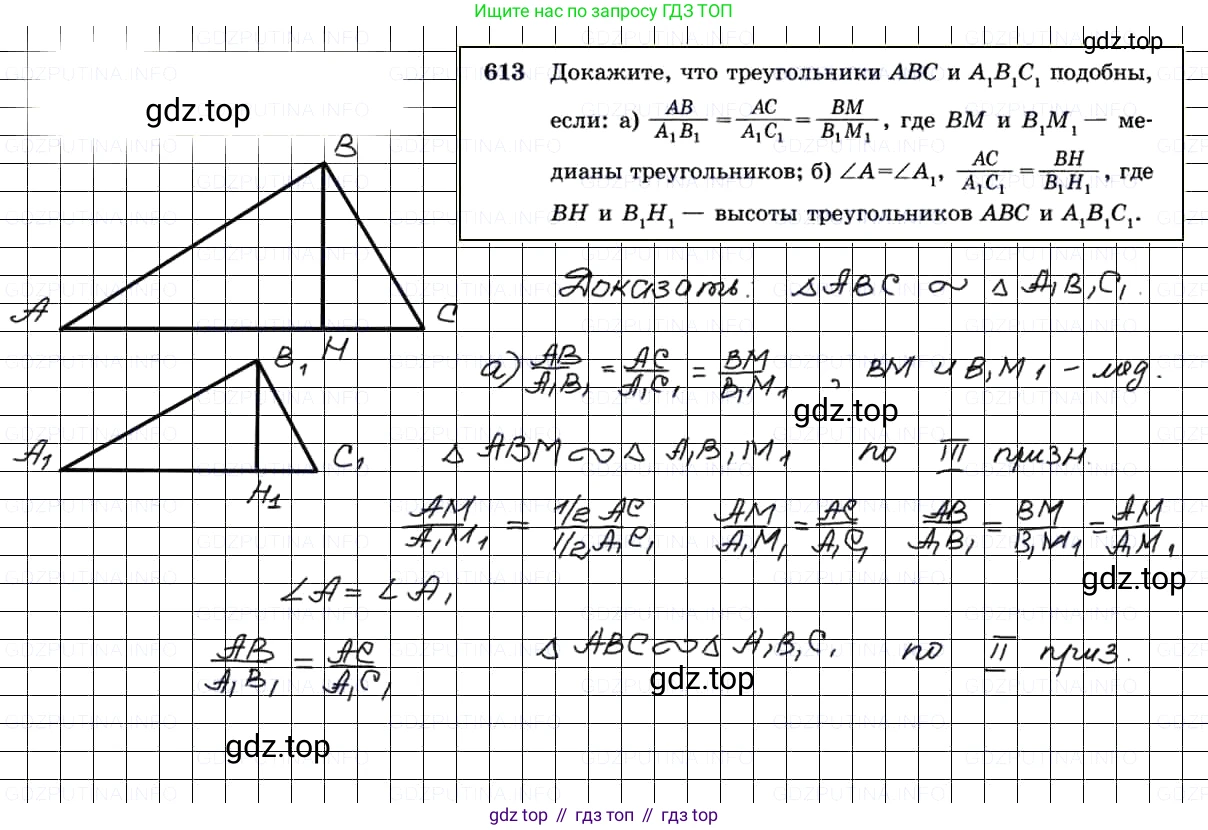 Ищите нас по запросу ГДЗ ТОП
gdz.top
613 Докажите, что треугольники ABC и A₁B₁C₁ подобны,
если: а) AB/A₁B₁ = AC/A₁C₁ = BM/B₁M₁, где BM и B₁M₁ — ме-
дианы треугольников; б) ∠A=∠A₁, AC/A₁C₁ = BH/B₁H₁, где
BH и B₁H₁ — высоты треугольников ABC и A₁B₁C₁.
gdz.top
B
A
C
H
Доказать: △ABC ∾ △A₁B₁C₁.
B₁
A₁
C₁
H₁
а) AB/A₁B₁ = AC/A₁C₁ = BM/B₁M₁, BM и B₁M₁ - мед.
gdz.top
△ABM ∾ △A₁B₁M₁ по III призн.
AM/A₁M₁ = 1/2 AC / 1/2 A₁C₁ AM/A₁M₁ = AC/A₁C₁ AB/A₁B₁ = BM/B₁M₁ = AM/A₁M₁
gdz.top
∠A = ∠A₁
AB/A₁B₁ = AC/A₁C₁ △ABC ∾ △A₁B₁C₁ по II приз.
gdz.top
gdz.top
gdz top // гдз топ // gdz top
GDZPUTINA.INFO